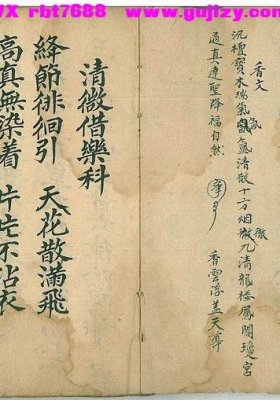 VX rbt7688 www.gujizy.com
香文
沉檀寶木瑞氣氤氳清散十方烟徹九清龍楼鳳閣瓊宮
通真達聖降福自然
香雲浮盖天尊
清微借樂科
絳節徘徊引 天花散滿飛
高真無染着 片片不沾衣